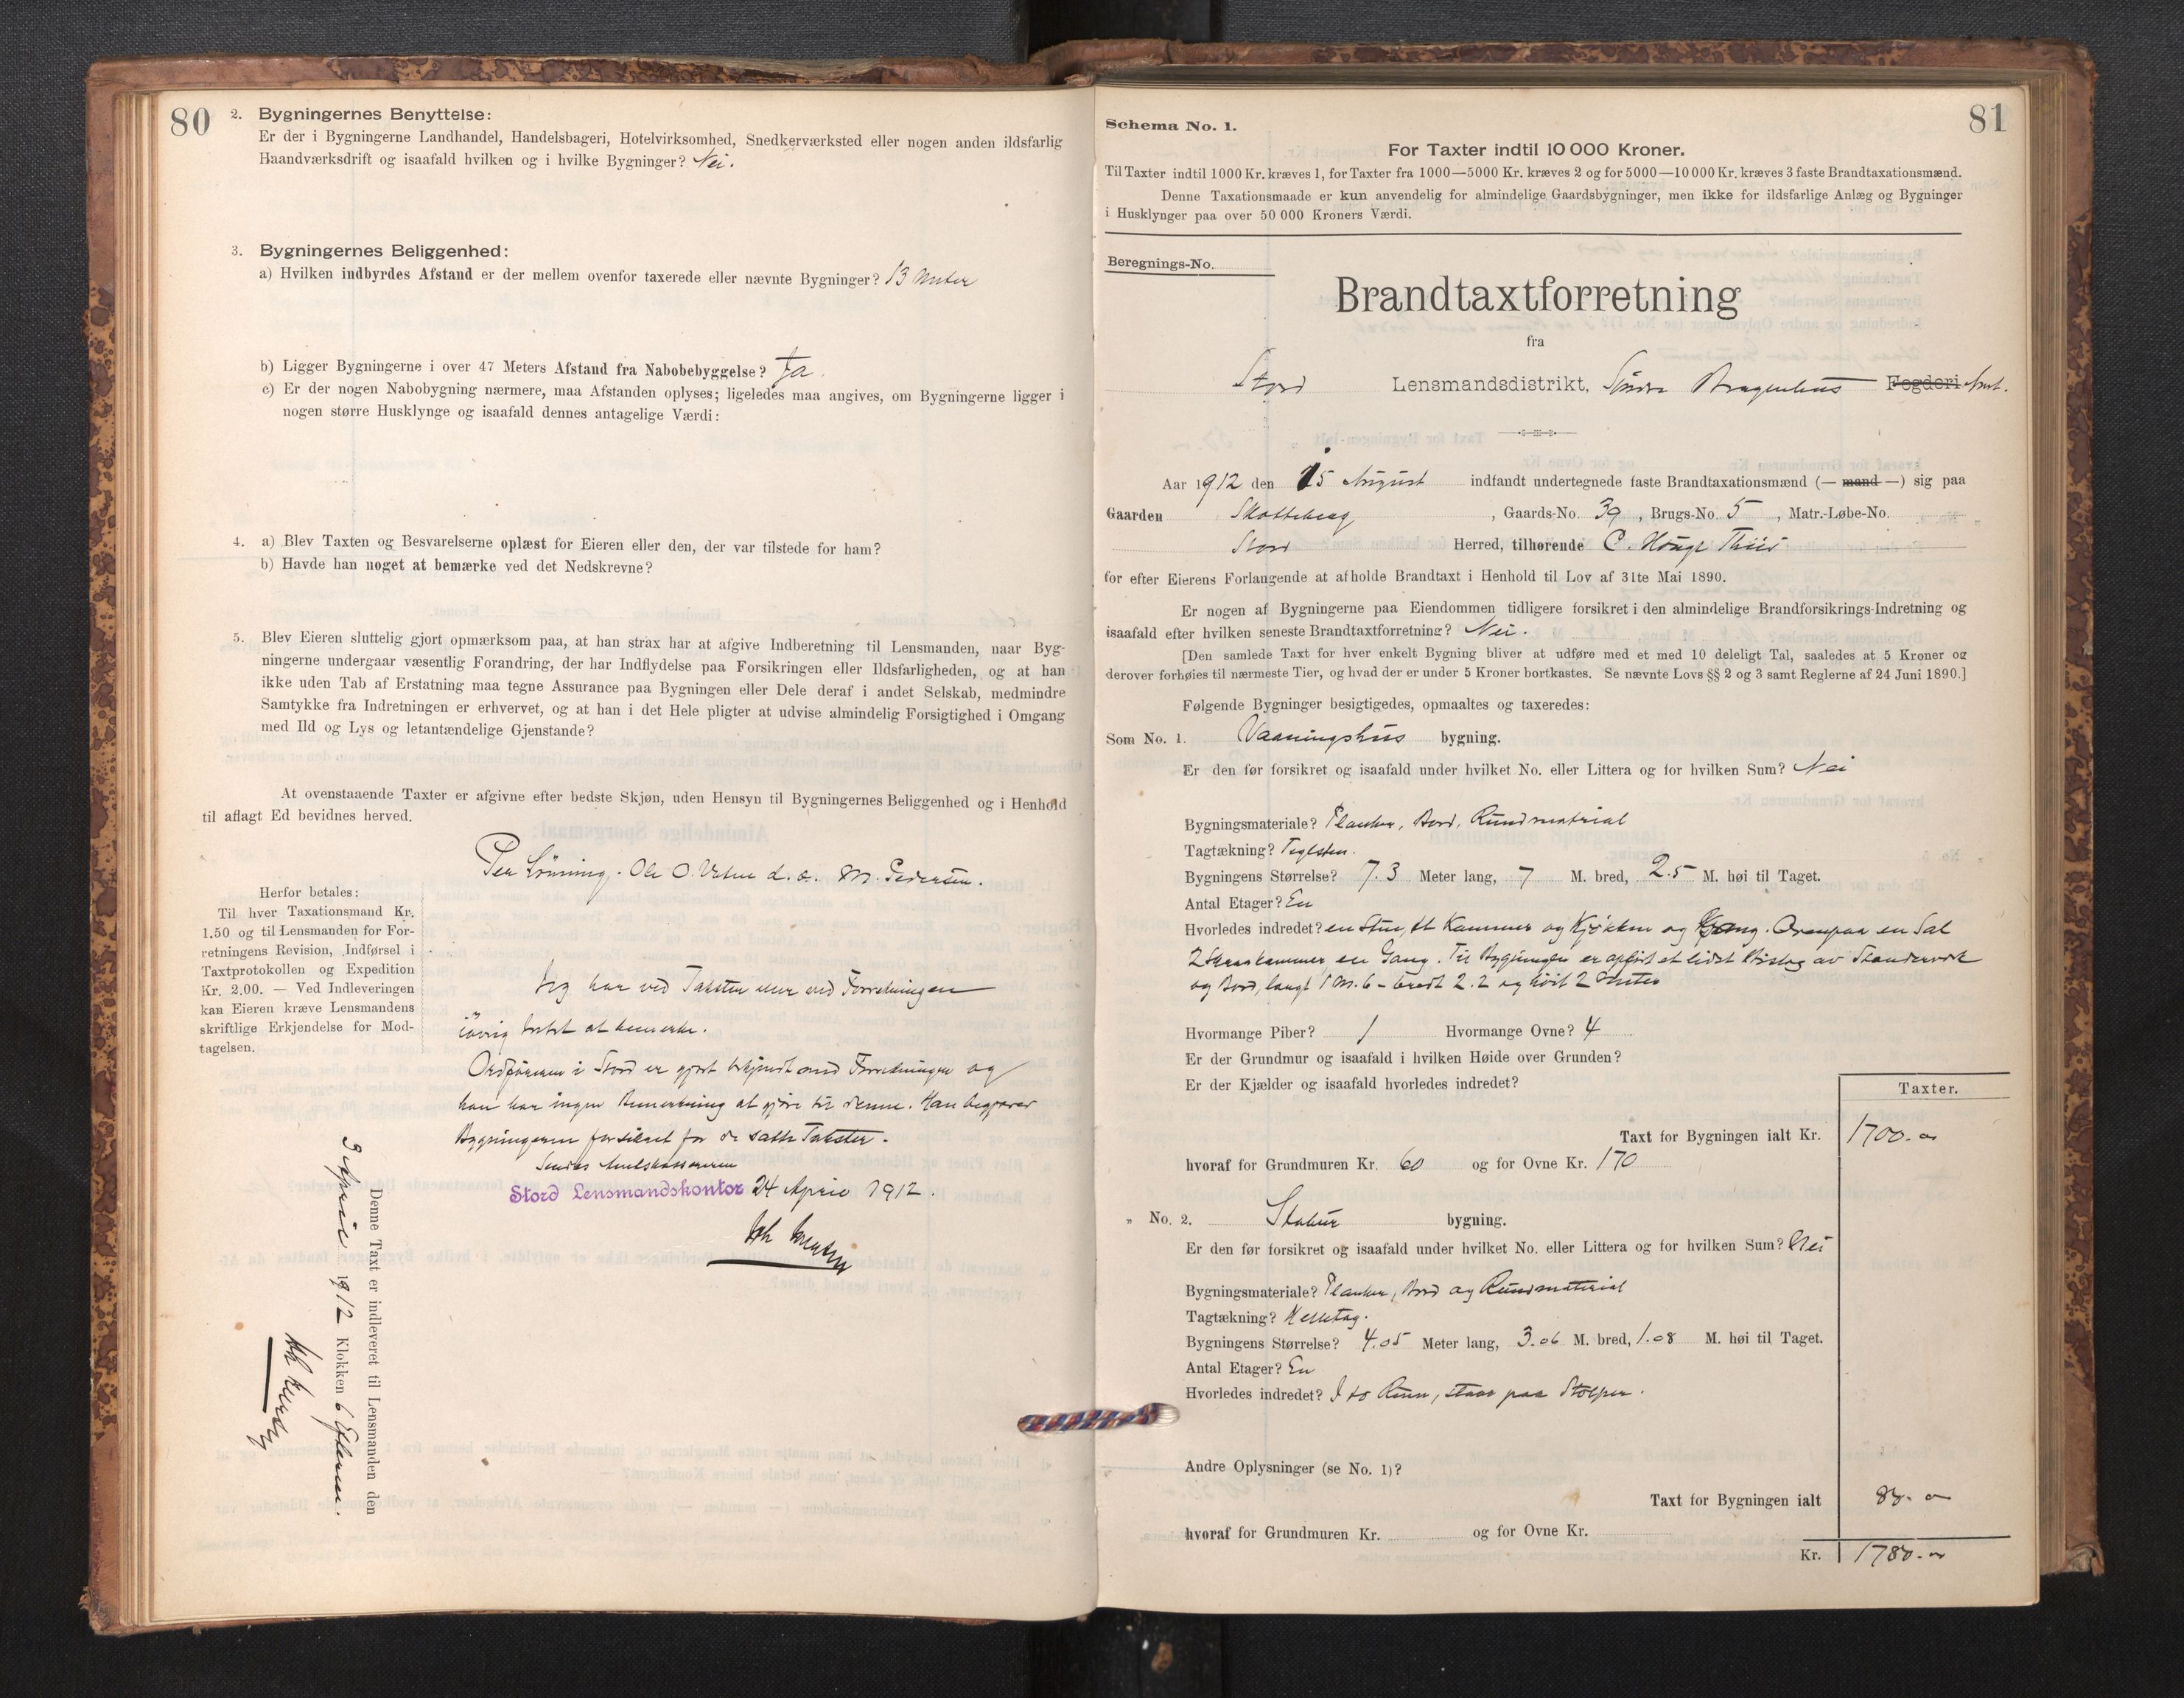 80
2. Bygningernes Benyttelse:
Er der i Bygningerne Landhandel, Handelsbageri, Hotelvirksomhed, Snedkerværksted eller nogen anden ildsfarlig
Haandværksdrift og isaafald hvilken og i hvilke Bygninger? Nei.
3. Bygningernes Beliggenhed:
a) Hvilken indbyrdes Afstand er der mellem ovenfor taxerede eller nævnte Bygninger? 13 Meter
b) Ligger Bygningerne i over 47 Meters Afstand fra Nabobebyggelse? Ja.
c) Er der nogen Nabobygning nærmere, maa Afstanden oplyses; ligeledes maa angives, om Bygningerne ligger i
nogen større Husklynge og isaafald dennes antagelige Værdi:
4. a) Blev Taxten og Besvarelserne oplæst for Eieren eller den, der var tilstede for ham?
b) Havde han noget at bemærke ved det Nedskrevne?
5. Blev Eieren sluttelig gjort opmærksom paa, at han strax har at afgive Indberetning til Lensmanden, naar Byg-
ningerne undergaar væsentlig Forandring, der har Indflydelse paa Forsikringen eller Ildsfarligheden, og at han
ikke uden Tab af Erstatning maa tegne Assurance paa Bygningen eller Dele deraf i andet Selskab, medmindre
Samtykke fra Indretningen er erhvervet, og at han i det Hele pligter at udvise almindelig Forsigtighed i Omgang
med Ild og Lys og letantændelige Gjenstande?
At ovenstaaende Taxter er afgivne efter bedste Skjøn, uden Hensyn til Bygningernes Beliggenhed og i Henhold
til aflagt Ed bevidnes herved.
Per Lönning. Ole O. d. æ. M. Pedersen.
Herfor betales:
Til hver Taxationsmand Kr.
1.50 og til Lensmanden for For-
retningens Revision, Indførsel i
Taxtprotokollen og Expedition
Kr. 2,00. — Ved Indleveringen
kan Eieren kræve Lensmandens
skriftlige Erkjendelse for Mod-
tagelsen.
Jeg har ved Taksten eller ved Forretningen
iövrig intet at bemerke.
Ordföreren i Stord er gjort bekjendt med Forretningen og
han har ingen Bemerkning at gjöre til denne. Han begjærer
Bygningerne forsikret for de satte Takster.
Sendes Amtskassereren
Stord Lensmandskontor 24 April 1912.
Denne Taxt er indleveret til Lensmanden den
9 April 1912 Klokken 6 Efterm.
81
Schema No. 1.
For Taxter indtil 10 000 Kroner.
Til Taxter indtil 1000 Kr. kræves 1, for Taxter fra 1000—5000 Kr. kræves 2 og for 5000—10 000 Kr. kræves 3 faste Brandtaxationsmænd.
Denne Taxationsmaade er kun anvendelig for almindelige Gaardsbygninger, men ikke for ildsfarlige Anlæg og Bygninger
i Husklynger paa over 50 000 Kroners Værdi.
Beregnings-No.
Brandtaxtforretning
fra
Stord Lensmandsdistrikt, Söndre Bergenhus Fogderi Amt.
Aar 1912 den 15 August indfandt undertegnede faste Brandtaxationsmænd (— mand —) sig paa
Gaarden Skotteberg, Gaards-No. 39, Brugs-No. 5, Matr.-Løbe-No.
Stord Herred, tilhørende C. Hougl Thiis
for efter Eierens Forlangende at afholde Brandtaxt i Henhold til Lov af 31te Mai 1890.
Er nogen af Bygningerne paa Eiendommen tidligere forsikret i den almindelige Brandforsikrings-Indretning og
isaafald efter hvilken seneste Brandtaxtforretning? Nei.
[Den samlede Taxt for hver enkelt Bygning bliver at udføre med et med 10 deleligt Tal, saaledes at 5 Kroner og
derover forhøies til nærmeste Tier, og hvad der er under 5 Kroner bortkastes. Se nævnte Lovs §§ 2 og 3 samt Reglerne af 24 Juni 1890.]
Følgende Bygninger besigtigedes, opmaaltes og taxeredes:
Som No. 1. Vaaningshus bygning.
Er den før forsikret og isaafald under hvilket No. eller Littera og for hvilken Sum? Nei
Bygningsmateriale? Planker, Bord, Rundmatrial
Tagtækning? Teglsten.
Bygningens Størrelse? 7.3 Meter lang, 7 M. bred, 2.5 M. høi til Taget.
Antal Etager? En
Hvorledes indredet? en Stue, et Kammer og Kjökken og Gang. Ovenpaa en Sal
2 Skraakammer en Gang. Til Bygningen er opfört et lidet Bislag av Standerverk
og Bord, langt 1 M. 6 – bredt 2.2 og höit 2 Meter
Hvormange Piber? 1 Hvormange Ovne? 4
Er der Grundmur og isaafald i hvilken Høide over Grunden?
Er der Kjælder og isaafald hvorledes indredet?
Taxter.
Taxt for Bygningen ialt Kr. 1700.00
hvoraf for Grundmuren Kr. 60 og for Ovne Kr. 170
„ No. 2. Stabur bygning.
Er den før forsikret og isaafald under hvilket No. eller Littera og for hvilken Sum? Nei
Bygningsmateriale? Planker, Bord og Rundmaterial
Tagtækning? Helletag.
Bygningens Størrelse? 4.05 Meter lang, 3.06 M. bred, 1.08 M. høi til Taget.
Antal Etager? En
Hvorledes indredet? I to Rum, staar paa Stolper.
Andre Oplysninger (se No. 1)?
Taxt for Bygningen ialt 80.00
hvoraf for Grundmuren Kr. og for Ovne Kr.
Kr. 1780.00